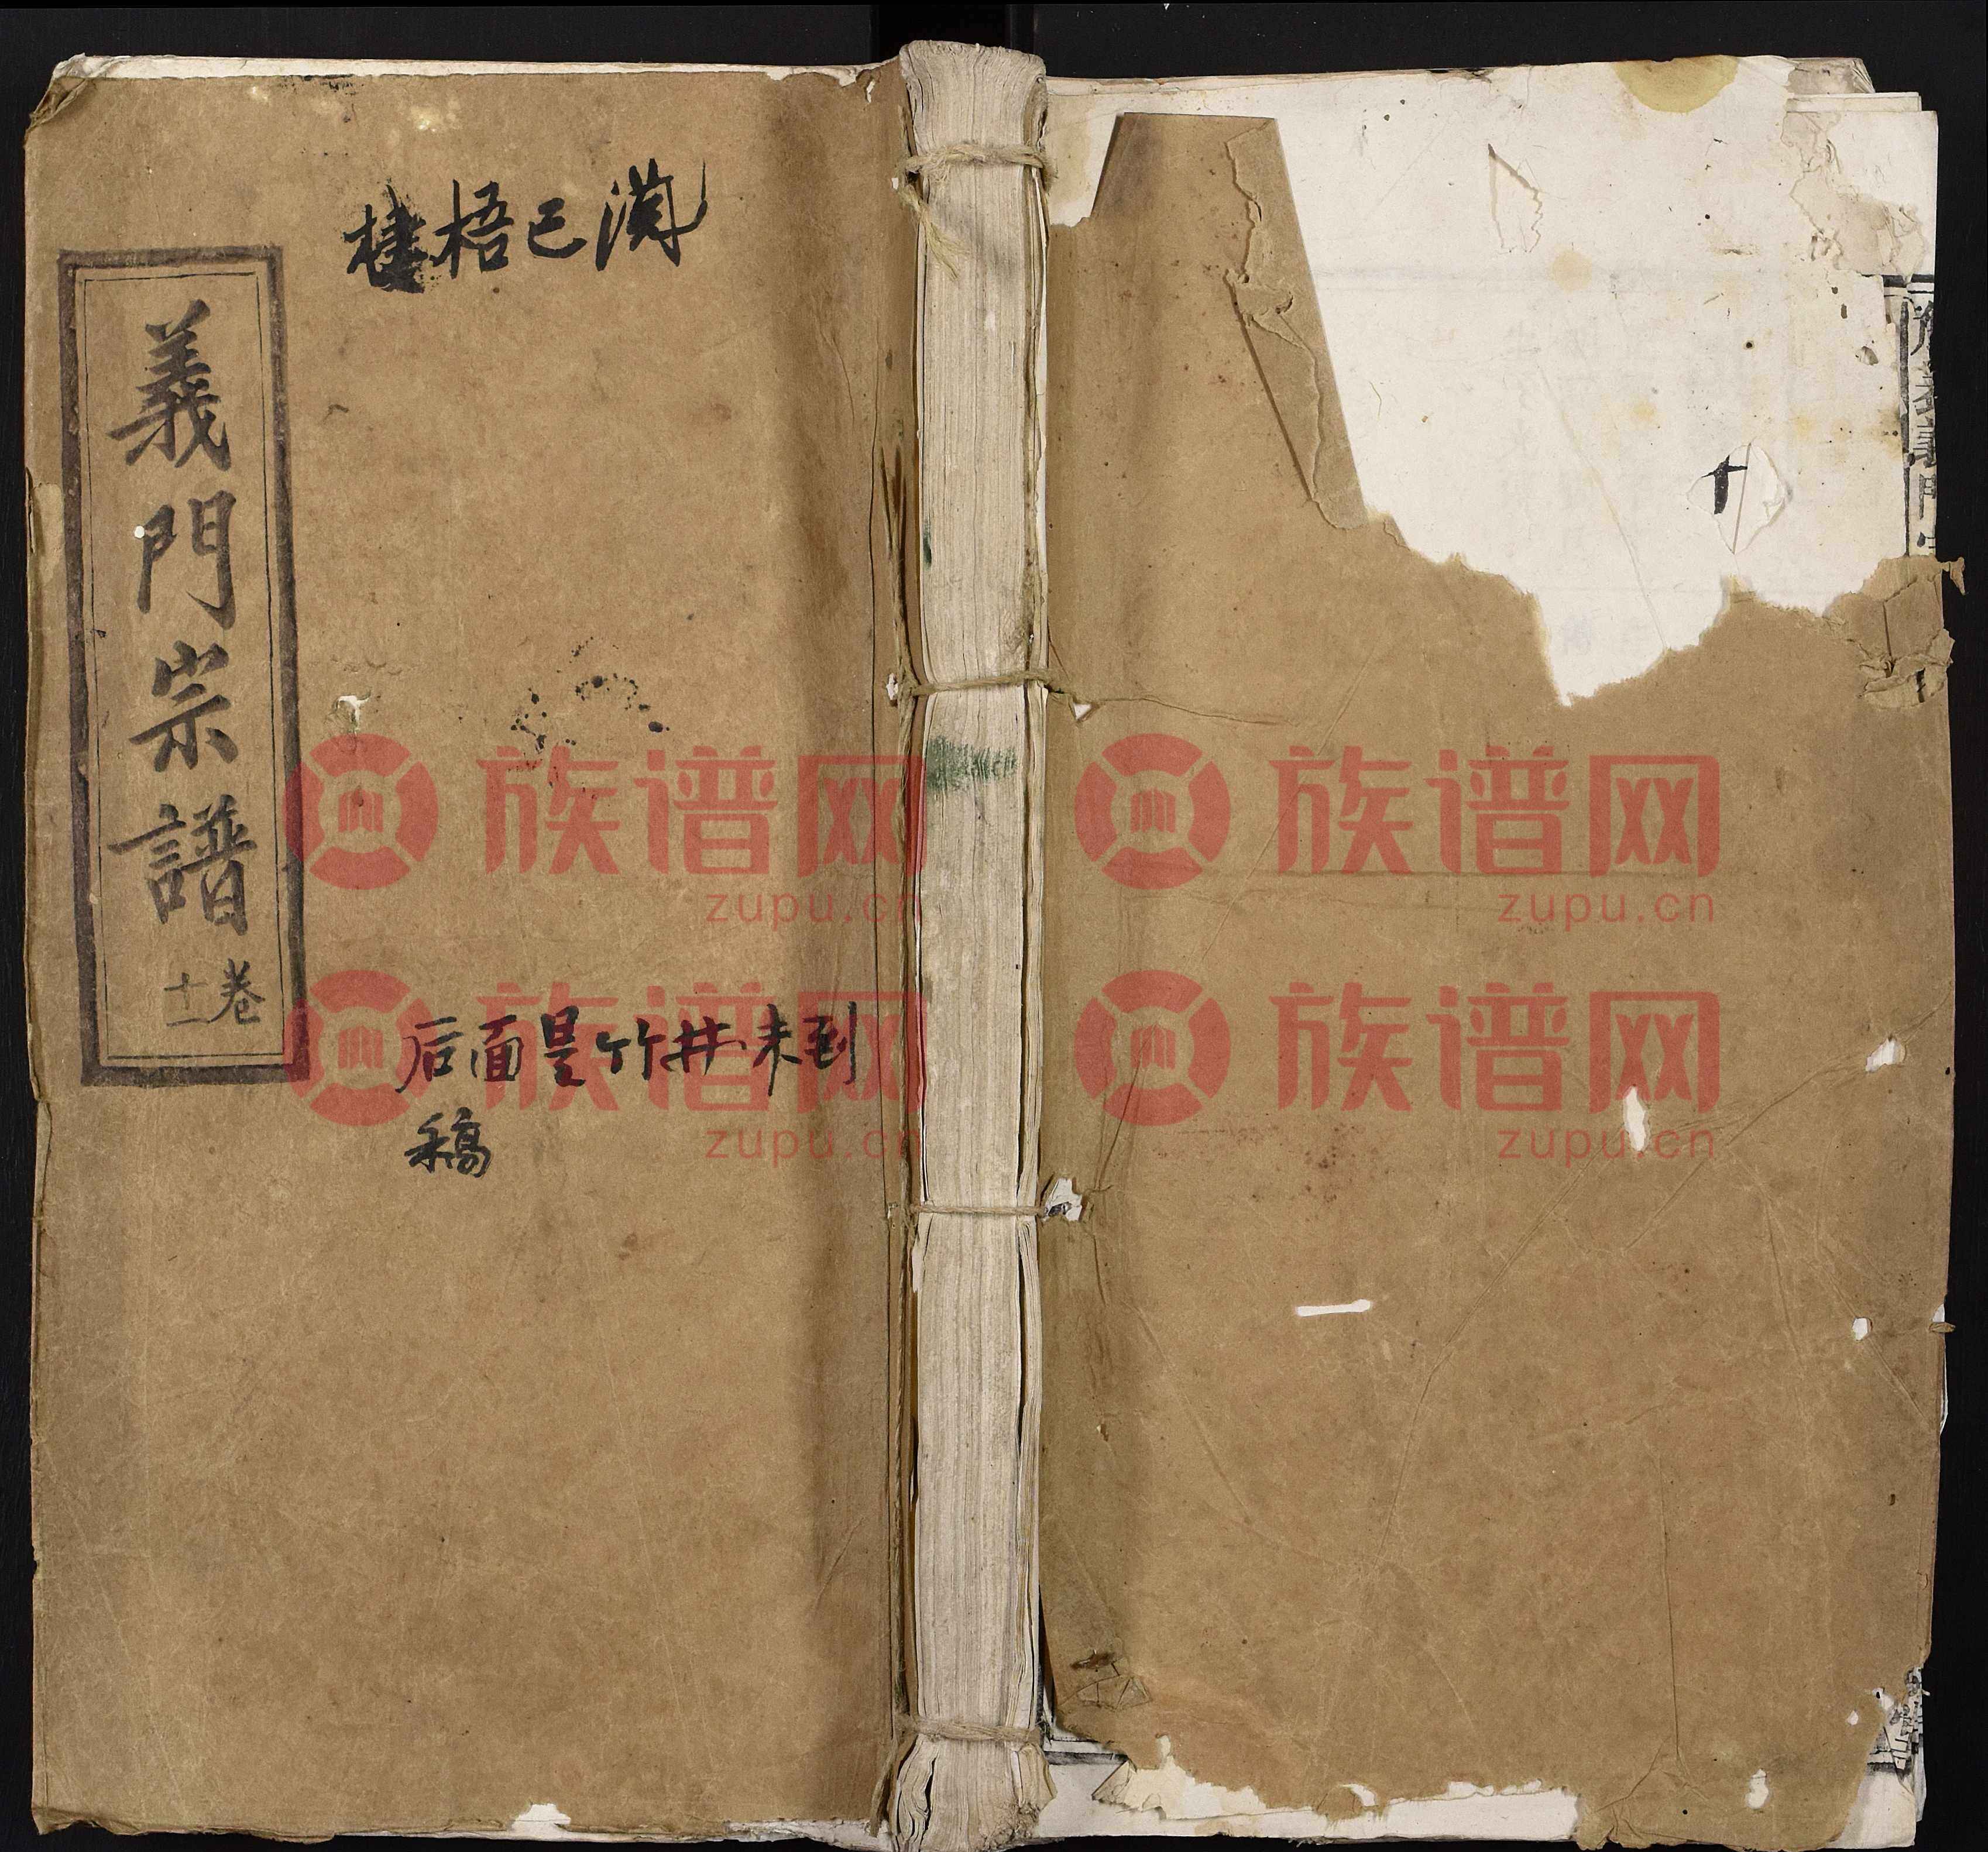 義門宗譜
卷
十一
梧已
后面是竹井未到
稿
族谱网
zupu.cn
族谱网
zupu.cn
族谱网
zupu.cn
族谱网
zupu.cn
義門